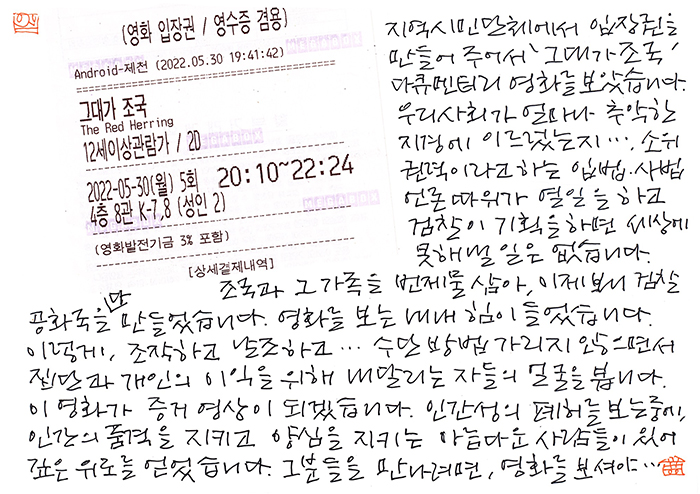 (영화 입장권 / 영수증 겸용)
Android-제전 (2022.05.30 19:41:42)
그대가 조국
The Red Herring
12세이상관람가 / 2D
2022-05-30(월) 5회 20:10~22:24
4층 8관 K-7,8 (성인 2)
(영화발전기금 3% 포함)
[상세결제내역]
지역시민단체에서 입장권을
만들어 주어서 '그대가 조국'
다큐멘터리 영화를 보았습니다.
우리사회가 얼마나 추악한
지경에 이르렀는지···, 소위
권력이라고 하는 입법·사법
언론 따위가 열일을 하고
검찰이 기획을 하면 세상에
못해낼 일은 없습니다.
조국과 그 가족을 번제물 삼아, 이제보니 검찰
공화국을 막 만들었습니다. 영화를 보는 내내 힘이 들었습니다.
이렇게, 조작하고 날조하고··· 수단 방법 가리지 않으면서
집단과 개인의 이익을 위해 내달리는 자들의 얼굴을 봅니다.
이 영화가 증거 영상이 되겠습니다. 인간성의 폐허를 보는중에,
인간의 품격을 지키고 양심을 지키는 아름다운 사람들이 있어
깊은 위로를 얻었습니다. 그분들을 만나려면, 영화를 보셔야···